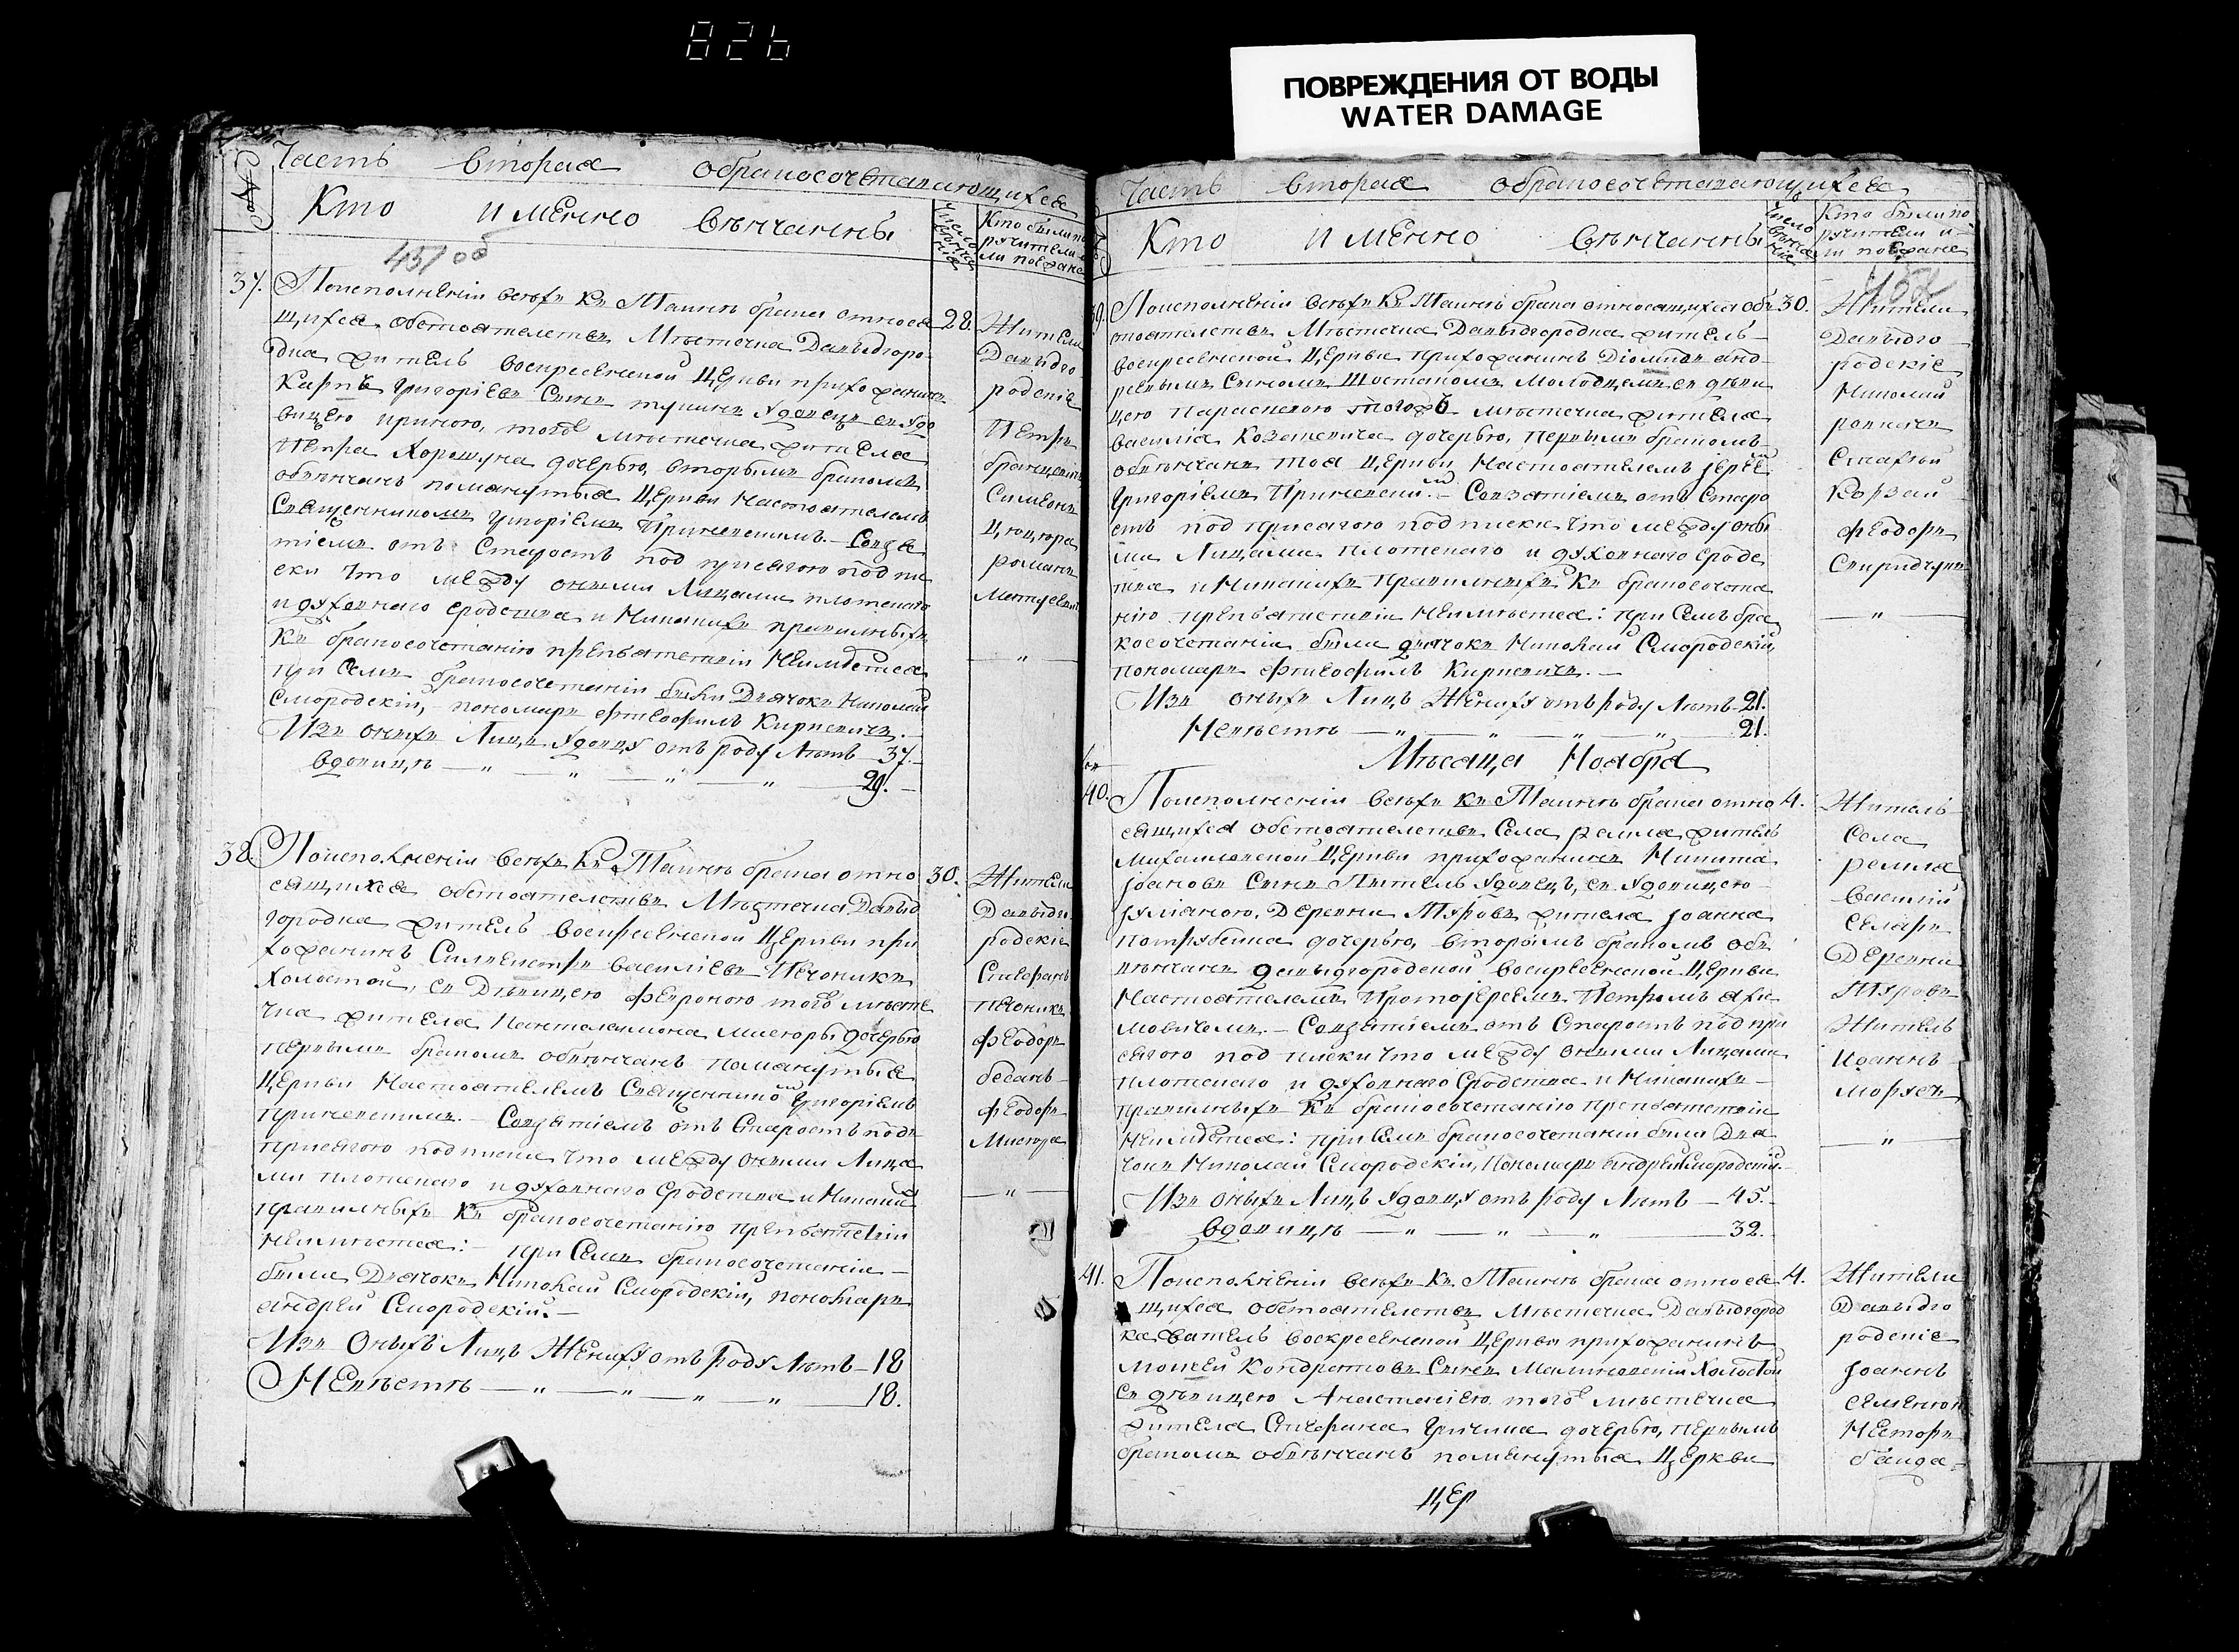 826
ПОВРЕЖДЕНИЯ ОТ ВОДЫ
WATER DAMAGE
Часть вторая обракосочетавающихся
Кто именно вѣнчанны
Число вѣнчанія
Кто были поручители или поѣзжане
451 об
37.
По исполненіи всѣхъ къ Таинѣ брака относя
щихся обстоятельствъ Мѣстечка Давыдгоро
дка житель воскресенской Церкви прихожанинъ
Карпъ Григоріевъ Сынъ вдовецъ съ вдо
вицею Ириною, тогожъ мѣстечка жителя
Петра Хорошуна дочерью, вторымъ бракомъ
обвѣнчанъ помянутыя Церкви Настоятелемъ
Священникомъ Григоріемъ Причевскимъ. – Совзя
тіемъ отъ Старостъ под присягою подпи
ски что между оными Лицами плотскаго
и духовнаго сродства и Никакихъ правильныхъ
Къ бракосочетанію препятствій Неимѣется
при Семъ бракосочетаніи были Дьячокъ Николай
Смородскій, – пономарь Фтеофилъ Киркевичъ. –
Изъ оныхъ Лицъ вдовцу отъ роду Лѣтъ 37. –
вдовицѣ — „ — „ — „ — „ — 29. –
28.
Жители
Давыдго
родскіе
Петръ
Симеонъ
романъ
„
38.
По исполненіи всѣхъ Къ Таинѣ брака отно
сящихся обстоятельствъ Мѣстечка Давыд
городка житель воскресенской Церкви при
хожанинъ Силвестръ василіевъ Печоникъ
Холостой, съ Дѣвицею Февроніою тогожъ мѣсте
чка жителя Пантелеимона Мисюры дочерью
первымъ бракомъ обвѣнчанъ помянутыя
Церкви Настоятелемъ Священникомъ Григоріемъ
Причевскимъ. – Совзятіемъ отъ Старостъ подъ
присягою подписки что между оными Лица
ми плотскаго и духовнаго Сродства и Никакихъ
правильныхъ Къ бракосочетанію препятствій
Неимѣется: – при Семъ бракосочетаніи –
были Дьячокъ Николай Смородскій, пономарь
андрей Смородскій. –
Изъ Оныхъ Лицъ Жениху отъ роду Лѣтъ – 18
Невѣстѣ — „ — „ — „ — „ — 18.
30.
Жители
Давыдго
родскіе
Стефанъ
печоникъ
Феодоръ
Феодоръ
Мисюра
— „ —
Часть вторая обракосочетавающихся
Кто именно вѣнчанны
Число вѣнчанія
Кто были поручители или поѣзжане
452
39.
По исполненіи всѣхъ Къ Таинѣ брака относящихся обс
тоятельствъ Мѣстечка Давыдгородка житель –
воскресенской Церкви прихожанинъ Діомидъ анд
реевымъ Сыномъ Шостакомъ Молодцемъ съ дѣви
цею Параскевою тогожъ мѣстечка жителя
василія дочерью, первымъ бракомъ –
обвѣнчанъ тоя Церкви Настоятелемъ іереемъ
Григоріемъ Причевскимъ. – Совзятіемъ отъ Старо
стъ под присягою подписки что между оны
ми Лицами плотскаго и духовнаго сродс
тва и Никакихъ правильныхъ Къ бракосочета
нію препятствій Неимѣется: при Семъ бра
косочетаніи были дьячокъ Николай Смородскій,
пономарь Фтеофилъ Киркевичъ. –
Изъ оныхъ Лицъ Жениху отъ роду Лѣтъ – 21.
Невѣстѣ — „ — „ — „ — „ — 21.
30.
Жители
Давыдго
родскіе
Николай
Феодоръ
— „ —
Мѣсяца Ноября
40.
По исполненіи всѣхъ къ Таинѣ брака отно
сящихся обстоятельствъ Села ремля житель
Михаиловской Церкви прихожанинъ Никита
іоановъ Сынъ вдовецъ, съ вдовицею –
Іуліаною, Деревни Туровъ жителя Іоанна
дочерью, вторымъ бракомъ обв
ѣнчанъ давыдгородской воскресенской Церкви
Настоятелемъ Протоіереемъ Петромъ
– Совзятіемъ отъ Старостъ под при
сягою под писки что между оными Лицами
плотскаго и духовнаго Сродства и Никакихъ –
правильныхъ Къ бракосочетанію препятствій
Неимѣется: при Семъ бракосочетаніи были Дья
чокъ Николай Смородскій, Пономарь андрей Смородскій. –
Изъ оныхъ Лицъ вдовцу отъ роду Лѣтъ – 45. –
вдовицѣ — „ — „ — „ — 32.
4.
Житель
Села
ремля
василій
Деревни
Туровъ
Житель
Иоаннъ
— „ —
41.
По исполненіи всѣхъ Къ Таинѣ брака относя
щихся обстоятельствъ Мѣстечка Давыдгород
ка житель воскресенской Церкви прихожанинъ
Моисей Кондратовъ Сынъ Малиновскій Холостой
съ дѣвицею Анастасіею тогожъ мѣстечка
жителя Стефана дочерью, первымъ
бракомъ обвѣнчанъ помянутыя Церкви
4.
Жители
Давыдго
родскіе
Іоаннъ
Несторъ
цер